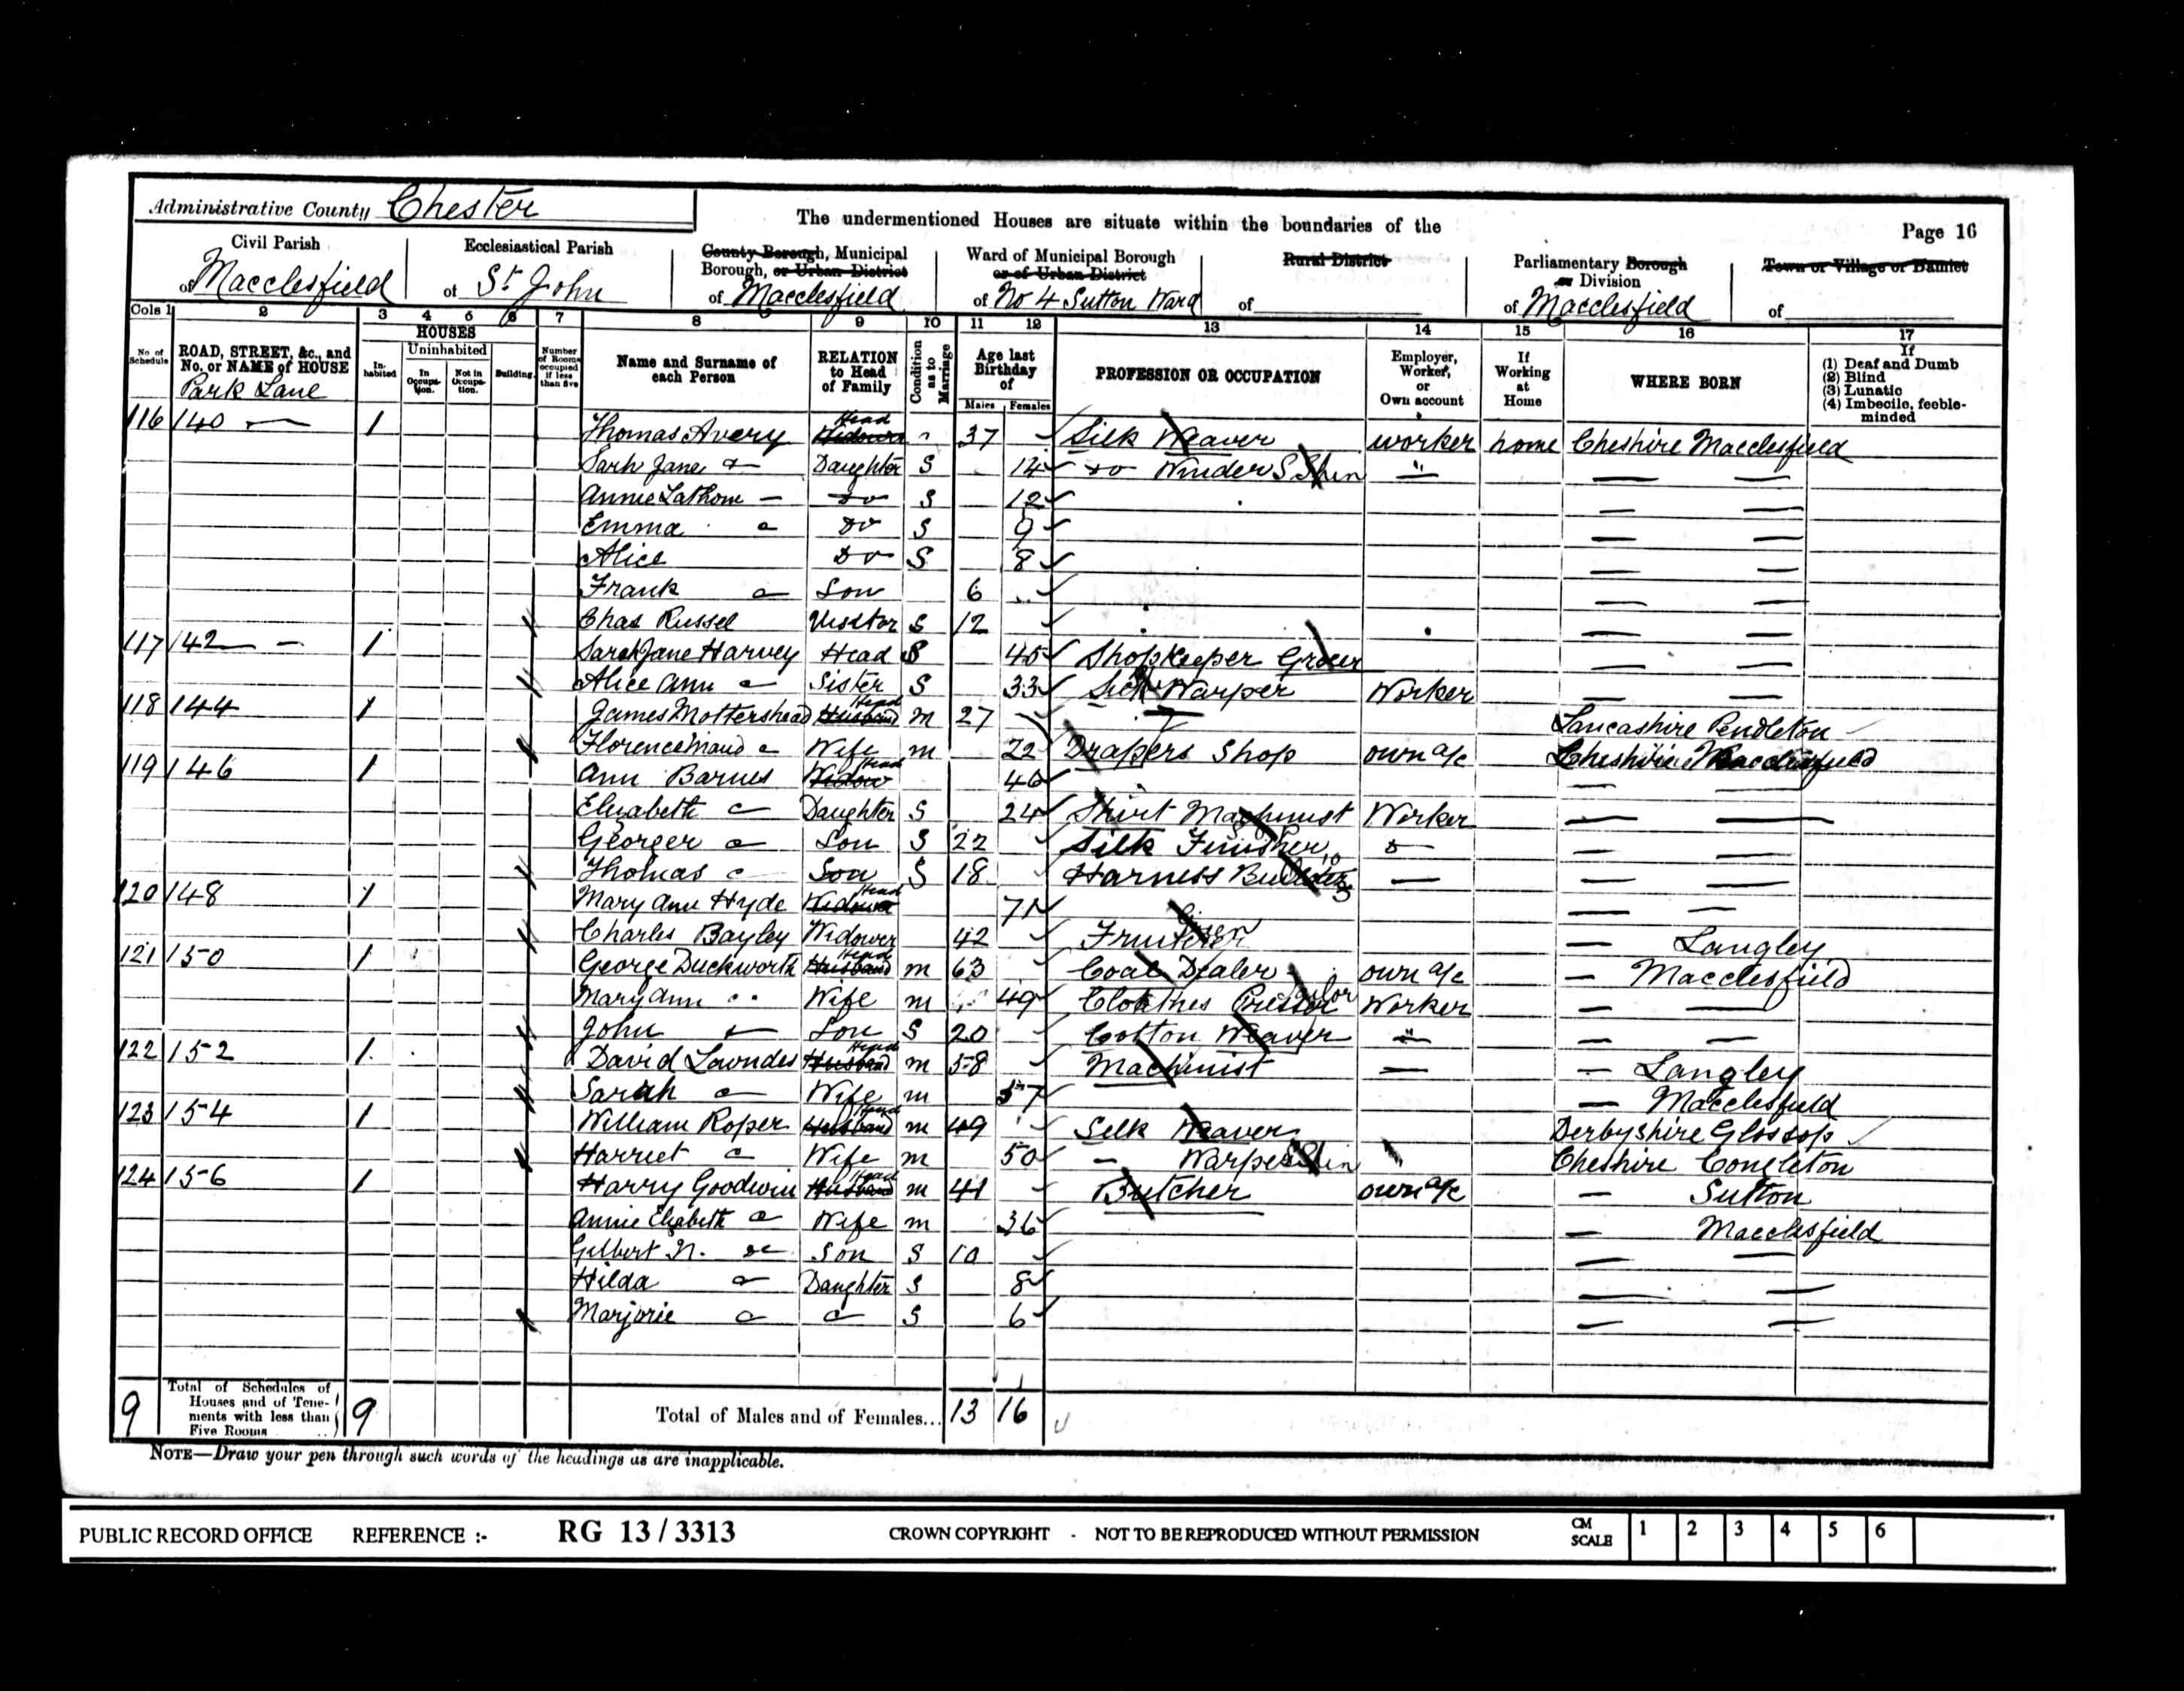 Administrative County Chester
The undermentioned Houses are situate within the boundaries of the
Page 16
Civil Parish of Macclesfield
Ecclesiastical Parish of St John
County Borough, Municipal Borough, or Urban District of Macclesfield
Ward of Municipal Borough or of Urban District of No 4 Sutton Ward
Rural District of
Parliamentary Borough or Division of Macclesfield
Town or Village or Hamlet of
Cols 1 2 3 4 5 6 7 8 9 10 11 12 13 14 15 16 17
No of Schedule
ROAD, STREET, &c., and No. or NAME of HOUSE
Park Lane
HOUSES
In-habited
Uninhabited
In Occupa-tion.
Not in Occupa-tion.
Building.
Number of Rooms occupied if less than five
Name and Surname of each Person
RELATION to Head of Family
Condition as to Marriage
Age last Birthday of
Males Females
PROFESSION OR OCCUPATION
Employer, Worker, or Own account
If Working at Home
WHERE BORN
If
(1) Deaf and Dumb
(2) Blind
(3) Lunatic
(4) Imbecile, feeble-minded
116 140 — 1 Thomas Avery Widower Head 37 Silk Weaver worker home Cheshire Macclesfield
Sarh Jane do Daughter S 14 do Winder " — —
Annie Lathom — do S 12 — —
Emma do do S 9 — —
Alice do S 8 — —
Frank do Son 6 — —
Chas Russel Visitor S 12 — —
117 142 — — 1 Sarah Jane Harvey Head S 45 Shopkeeper Grocer — —
Alice Ann do Sister S 33 Silk Warper Worker — —
118 144 1 James Mottershead Husband Head m 27 Lancashire Pendleton
Florence Maud do Wife m 22 Drapers Shop own a/c Cheshire Macclesfield
119 146 1 Ann Barnes Widow Head 46 — —
Elizabeth do Daughter S 24 Shirt Machinist Worker — —
George do Son S 22 Silk Finisher do — —
Thomas do Son S 18 Harness — — —
120 148 1 Mary Ann Hyde Widow Head 71 — —
Charles Bayley Widower 42 Fruiterer — Langley
121 150 1 George Duckworth Husband Head m 63 Coal Dealer own a/c — Macclesfield
Mary Ann " Wife m 49 Clothes Presser Tailor Worker — —
John do Son S 20 Cotton Weaver " — —
122 152 1 David Lowndes Husband Head m 58 Machinist — — Langley
Sarah do Wife m 57 — Macclesfield
123 154 1 William Roper Husband Head m 49 Silk Weaver Derbyshire Glossop
Harriet do Wife m 50 — Warper Cheshire Congleton
124 156 1 Harry Goodwin Husband Head m 41 Butcher own a/c — Sutton
Annie Elizabeth do Wife m 36 — Macclesfield
Gilbert N. do Son S 10 — —
Hilda do Daughter S 8 — —
Marjorie do do S 6 — —
9 Total of Schedules of Houses and of Tene-ments with less than Five Rooms .. 9
Total of Males and of Females... 13 16
NOTE—Draw your pen through such words of the headings as are inapplicable.
PUBLIC RECORD OFFICE REFERENCE :- RG 13 / 3313 CROWN COPYRIGHT - NOT TO BE REPRODUCED WITHOUT PERMISSION CM SCALE 1 2 3 4 5 6